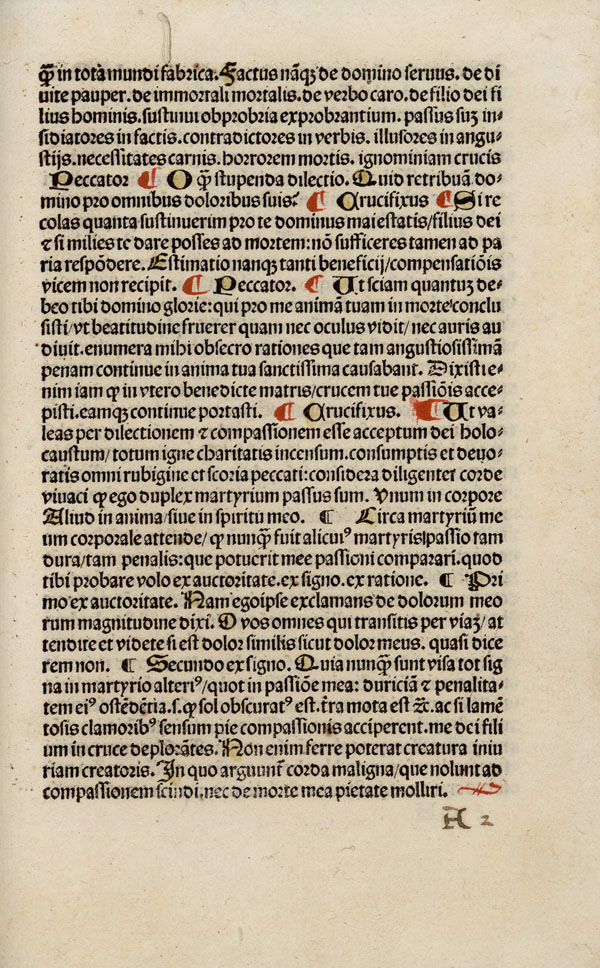 qȝ in tota mundi fabrica. Factus nãqȝ de domino seruus. de di
uite pauper. de immortali mortalis. de verbo caro. de filio dei fi
lius hominis. sustinui obprobria exprobrantium. passus suȝ in⸗
sidiatores in factis. contradictores in verbis. illusores in angu⸗
stijs. necessitates carnis. horrorem mortis. ignominiam crucis
Peccator ¶ O qȝ stupenda dilectio. Quid retribuã do⸗
mino pro omnibus doloribus suis? ¶ Crucifixus ¶ Si re
colas quanta sustinuerim pro te dominus maiestatis/filius dei
⁊ si milies te dare posses ad mortem: nõ sufficeres tamen ad pa
ria respõdere. Estimatio nanqȝ tanti beneficij/compensatiõis
vicem non recipit. ¶ Peccator. ¶ Ut sciam quantuȝ de⸗
beo tibi domino glorie: qui pro me animã tuam in morte conclu
sisti/vt beatitudine fruerer quam nec oculus vidit/nec auris au
diuit. enumera mihi obsecro rationes que tam angustiosissimã
penam continue in anima tua sanctissima causabant. Dixisti e⸗
nim iam ꝙ in vtero benedicte matris/crucem tue passiõis acce⸗
pisti. eamqȝ continue portasti. ¶ Crucifixus. ¶ Ut va⸗
leas per dilectionem ⁊ compassionem esse acceptum dei holo⸗
caustum/totum igne charitatis incensum. consumptis et deuo⸗
ratis omni rubigine et scoria peccati: considera diligenter corde
viuaci ꝙ ego duplex martyrium passus sum. Vnum in corpore
Aliud in anima/siue in spiritu meo. ¶ Circa martyriũ me
um corporale attende/ꝙ nunqȝ fuit alicuiꝰ martyris passio tam
dura/tam penalis: que potuerit mee passioni comparari. quod
tibi probare volo ex auctoritate. ex signo. ex ratione. ¶ Pri
mo ex auctoritate. Nam egoipse exclamans de dolorum meo
rum magnitudine dixi. O vos omnes qui transitis per viaȝ/at
tendite et videte si est dolor similis sicut dolor meus. quasi dice
rem non. ¶ Secundo ex signo. Quia nunqȝ sunt visa tot sig
na in martyrio alteriꝰ/quot in passiõe mea: duriciã ⁊ penalita⸗
tem eiꝰ ostẽdẽtia. s. ꝙ sol obscuratꝰ est. t̃ra mota est ⁊c̃. ac si lamẽ
tosis clamoribꝰ sensum pie compassionis acciperent. me dei fili
um in cruce deplorãtes. Non enim ferre poterat creatura iniu
riam creatoris. In quo arguunt̃ corda maligna/que nolunt ad
compassionem scindi, nec de morte mea pietate molliri.
A 2